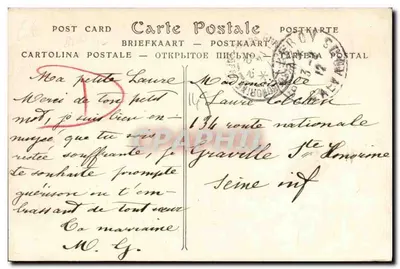 POST CARD Carte Postale POSTKARTE
BRIEFKAART — POSTKAART
CARTOLINA POSTALE — ОТКРЫТОЕ ПИСЬМО
Ma petite Laure
Merci de ton petit
mot, je suis bien en-
nuyée que tu sois
restée souffrante, je
te souhaite prompte
guérison en t'em-
brassant de tout cœur
Ta marraine
M. G.
Mademoiselle
Laure
134 route nationale
Graville Ste Honorine
Seine inf